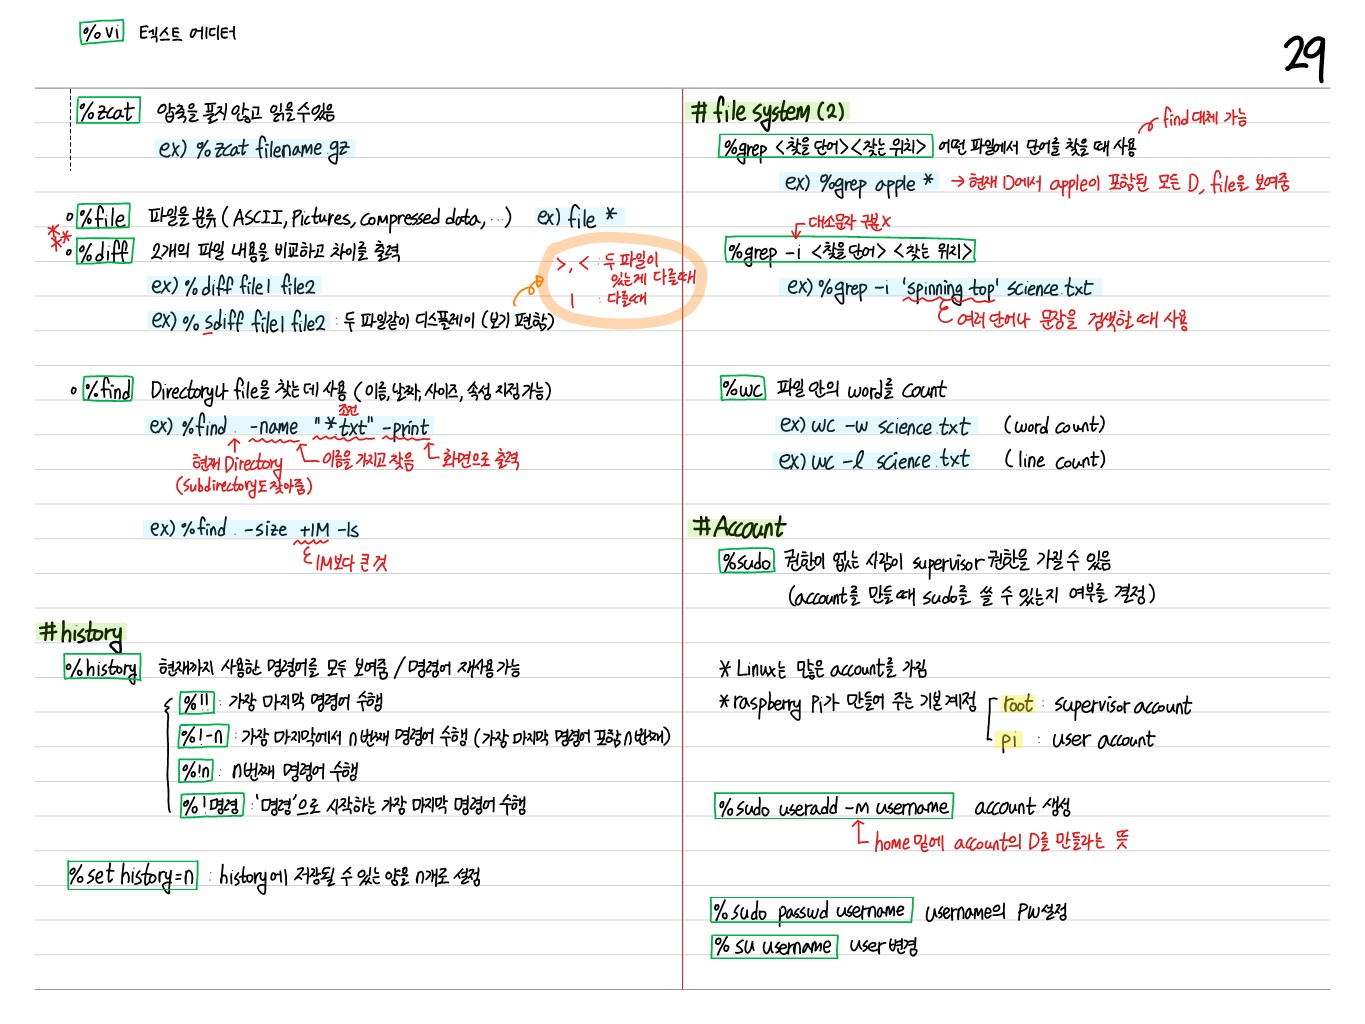 %vi 텍스트 에디터
29
%zcat 압축을 풀지 않고 읽을 수 있음
ex) %zcat filename gz
%file 파일을 분류 (ASCII, Pictures, compressed data, ...) ex) file *
%diff 2개의 파일 내용을 비교하고 차이를 출력
ex) %diff file1 file2
ex) %sdiff file1 file2 : 두 파일같이 디스플레이 (보기 편함)
>, < : 두 파일이
있는게 다를때
| : 다를때
%find Directory나 file을 찾는 데 사용 (이름, 날짜, 사이즈, 속성 지정 가능)
조건
ex) %find . -name "*.txt" -print
현재 Directory
(subdirectory도 찾아줌)
이름을 가지고 찾음
화면으로 출력
ex) %find . -size +1M -ls
1M보다 큰 것
#history
%history 현재까지 사용한 명령어를 모두 보여줌 / 명령어 재사용 가능
%!! : 가장 마지막 명령어 수행
%!-n : 가장 마지막에서 n번째 명령어 수행 (가장 마지막 명령어 포함 n번째)
%!n : n번째 명령어 수행
%!명령 : '명령'으로 시작하는 가장 마지막 명령어 수행
%set history=n : history에 저장될 수 있는 양을 n개로 설정
# file system (2)
find 대체 가능
%grep <찾을 단어><찾는 위치> 어떤 파일에서 단어를 찾을 때 사용
ex) %grep apple * → 현재 D에서 apple이 포함된 모든 D, file을 보여줌
대소문자 구분X
%grep -i <찾을 단어> <찾는 위치>
ex) %grep -i 'spinning top' science.txt
여러 단어나 문장을 검색할 때 사용
%wc 파일 안의 word를 count
ex) wc -w science.txt (word count)
ex) wc -l science.txt (line count)
#Account
%sudo 권한이 없는 사람이 supervisor 권한을 가질 수 있음
(account를 만들 때 sudo를 쓸 수 있는지 여부를 결정)
* Linux는 많은 account를 가짐
* raspberry Pi가 만들어 주는 기본계정
root : supervisor account
pi : user account
%sudo useradd -m username account 생성
home 밑에 account의 D를 만들라는 뜻
%sudo passwd username username의 PW설정
%su username user변경